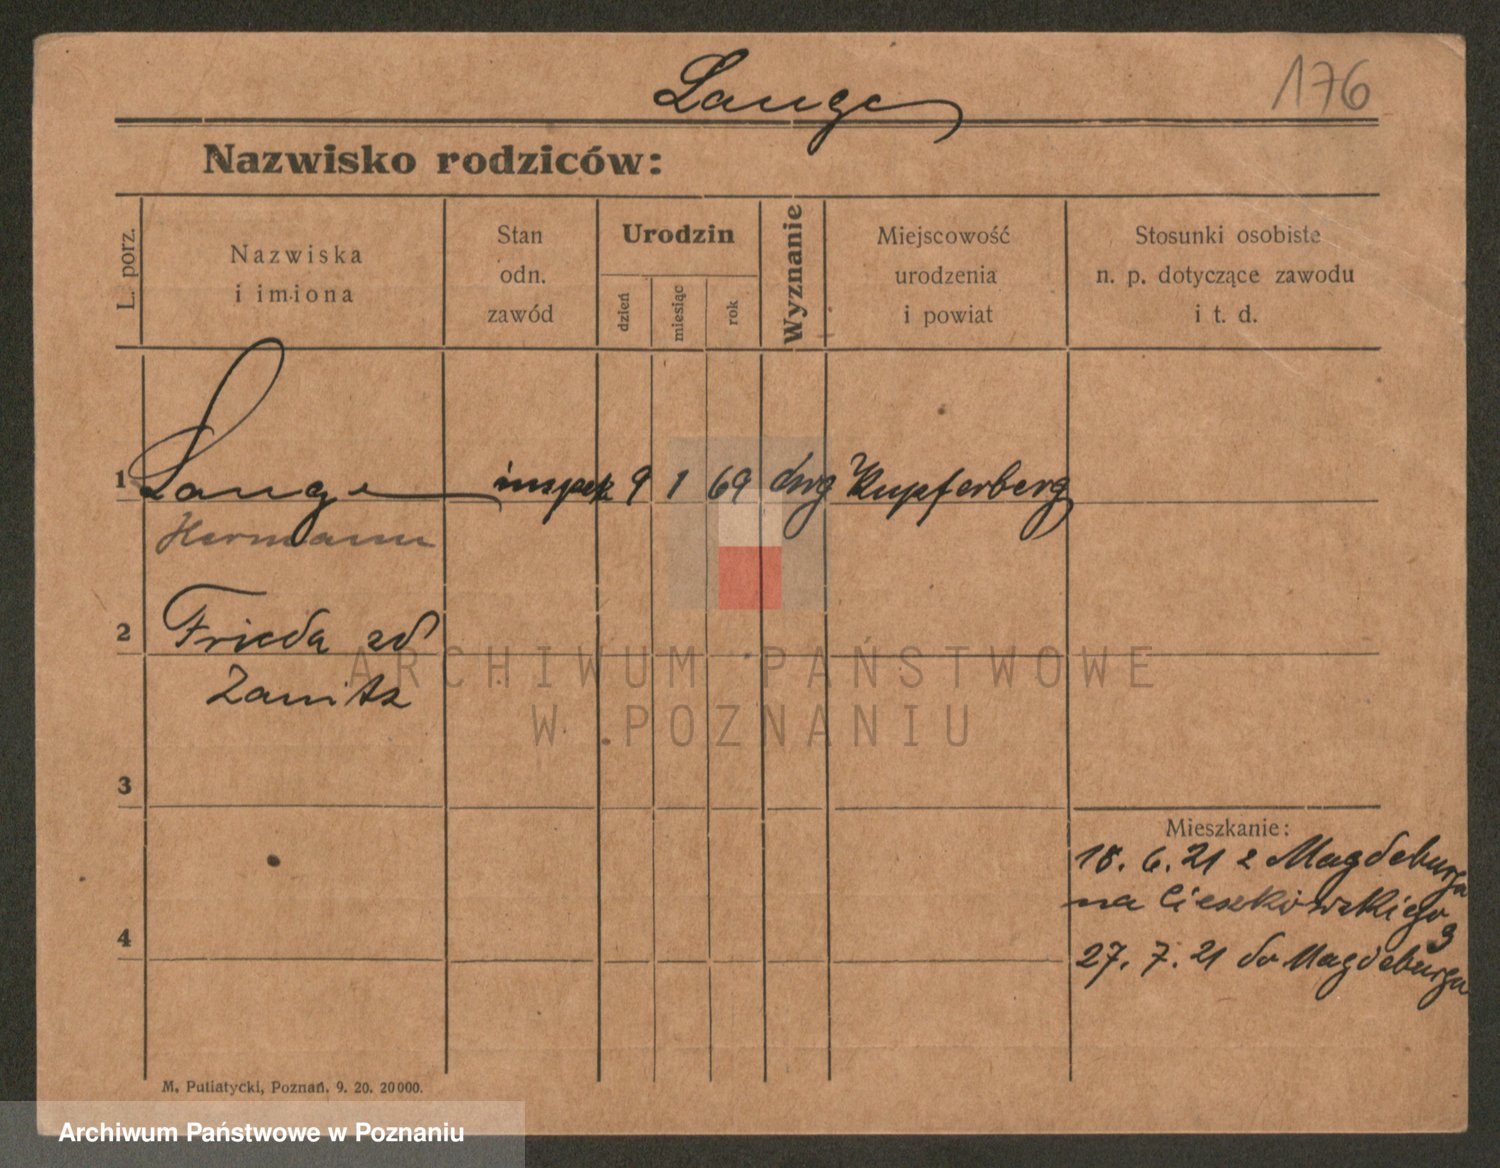 Lange
176
Nazwisko rodziców:
L. porz.
Nazwiska
i imiona
Stan
odn.
zawód
Urodzin
dzień
miesiąc
rok
Wyznanie
Miejscowość
urodzenia
i powiat
Stosunki osobiste
n. p. dotyczące zawodu
i t. d.
1 Lange inspek 9 1 69 ewg Kupferberg
Hermann
2 Frieda zd
Zanitz
ARCHIWUM PAŃSTWOWE
W POZNANIU
3
Mieszkanie:
18. 6. 21 z Magdeburga
na Cieszkowskiego
3
4
27. 7. 21 do Magdeburga
M. Putiatycki, Poznań. 9. 20. 20000.
Archiwum Państwowe w Poznaniu